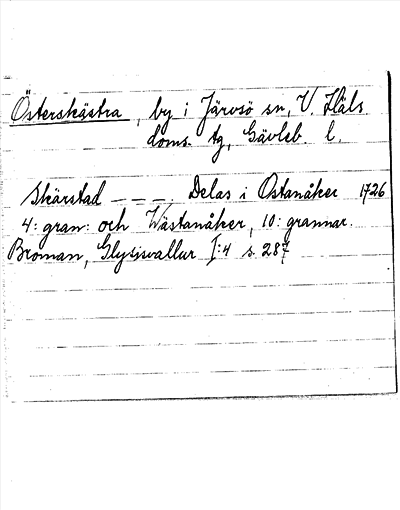 Österskästra, by i Järvsö sn, V. Häls
doms. tg, Gävleb. l.
Skärstad - - - Delas i Östanåker 1726
4: gran: och Wästanåker, 10: grannar.
Broman, Glysisvallur I:4 s. 287